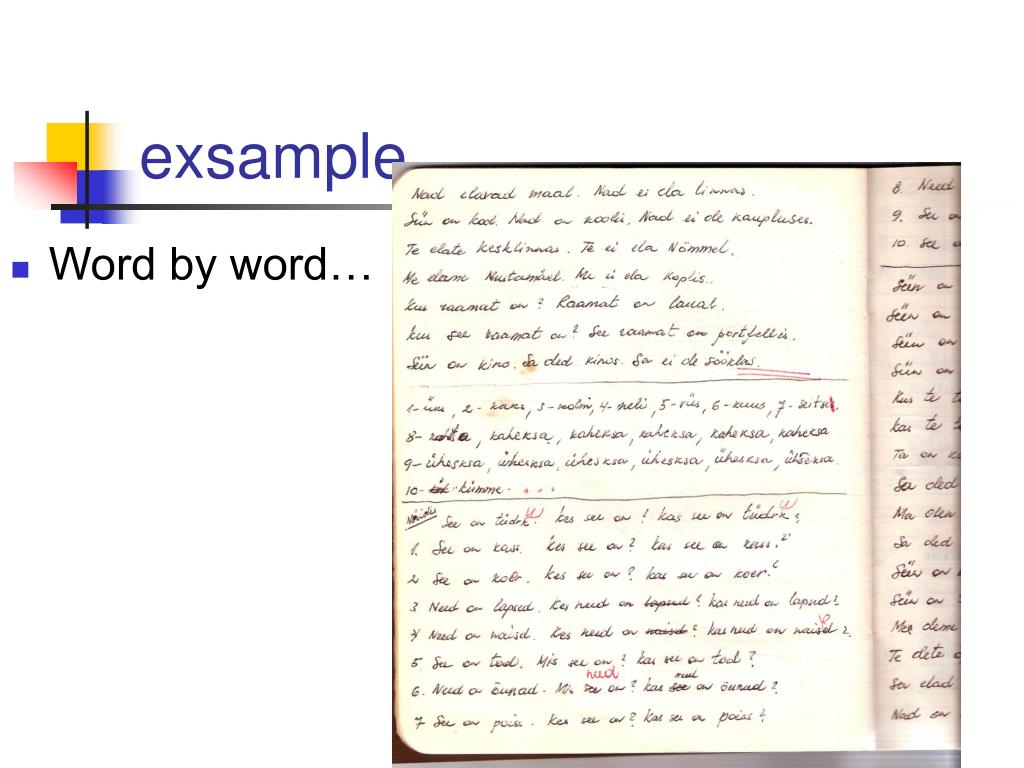 exsample
Word by word…
Nad elavad maal. Nad ei ela linnas.
Siin on kool. Nad on koolis. Nad ei ole kaupluses.
Te elate kesklinnas. Te ei ela Nõmmel.
Me elame Mustamäel. Me ei ela Koplis.
Kus raamat on? Raamat on laual.
Kus see raamat on? See raamat on portfellis.
Siin on kino. Sa oled kinos. Sa ei ole sööklas.
1- üks, 2- kaks, 3- kolm, 4- neli, 5- viis, 6- kuus, 7- seitse.
8- kaheksa, kaheksa, kaheksa, kaheksa, kaheksa
9- üheksa, üheksa, üheksa, üheksa, üheksa, üheksa.
10- kümme - . . .
See on tüdruk. Kes see on? Kas see on tüdruk?
1. See on kass. Kes see on? Kas see on kass?
2 See on koer. Kes see on? Kas see on koer?
3 Need on lapsed. Kes need on lapsed? Kas need on lapsed?
4 Need on naised. Kes need on naised? Kas need on naised?
5 See on tool. Mis see on? Kas see on tool?
need need
6. Need on õunad. Mis see on? Kas see on õunad?
7 See on poiss. Kes see on? Kas see on poiss?
8. Need
9. See on
10. See
Siin on
Siin on
Siin on
Siin on
Kus te
Kas te
Ta on
Sa oled
Ma olen
Sa oled
Siin on
Siin on
Me oleme
Te olete
Sa elad
Nad on